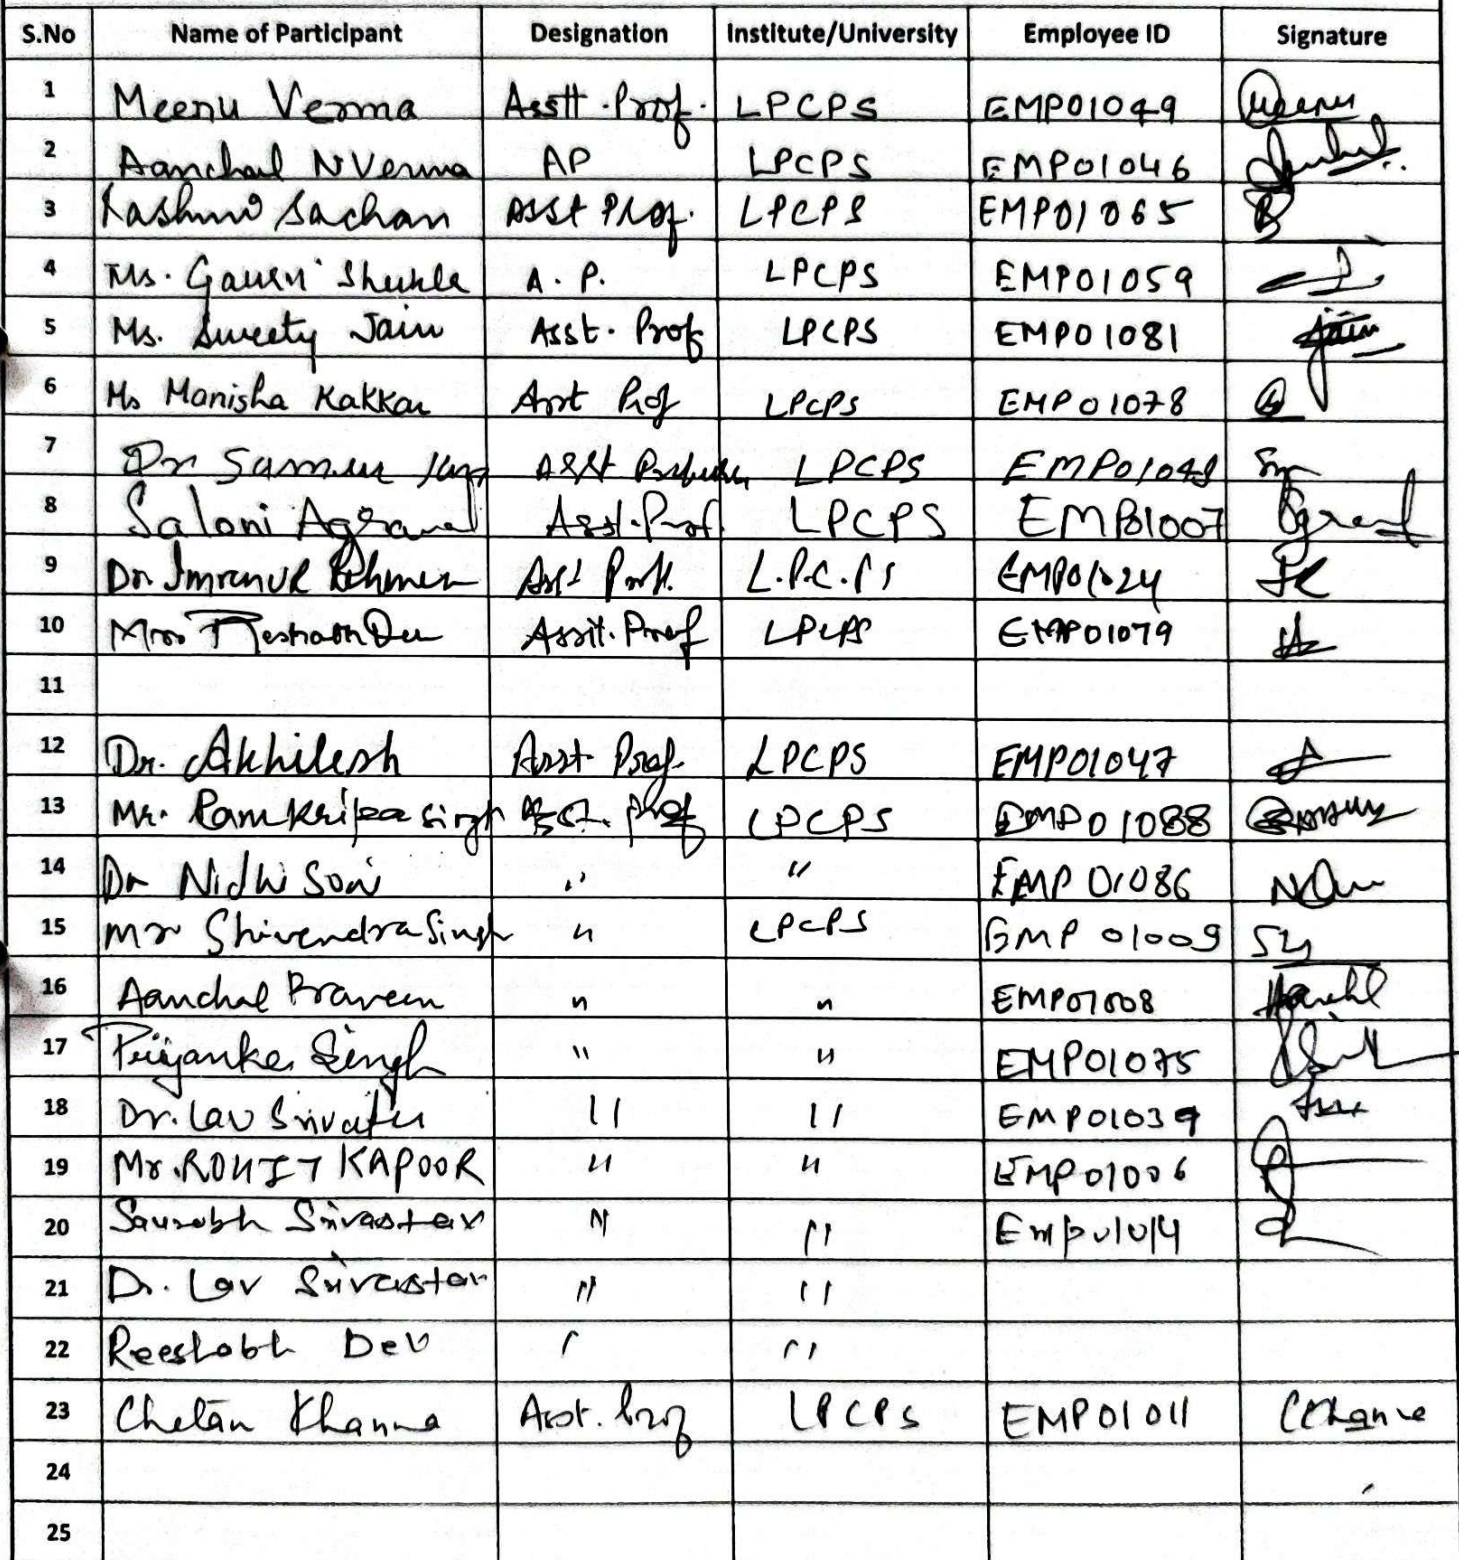 S.No Name of Participant Designation Institute/University Employee ID Signature
1 Meenu Verma Asstt. Prof. LPCPS EMP01049 Meenu
2 Aanchal N Verma AP LPCPS EMP01046
3 Sachan Asst Prof. LPCPS EMP01065
4 Ms. Gauri Shukla A.P. LPCPS EMP01059
5 Ms. Sweety Jain Asst. Prof LPCPS EMP01081 Jain
6 Ms Manisha Kakkar Asst Prof LPCPS EMP01078
7 Dr Asst LPCPS
8 Saloni Agrawal Asst. Prof. LPCPS EMP01007
9 Dr. Imranur Rehman Asst Prof. L.P.C.PS EMP01024
10 Assit. Prof LPCPS EMP01079
11
12 Dr. Akhilesh Asst. Prof. LPCPS EMP01047
13 Mr. Ramkripa Singh Asst. Prof LPCPS EMP01088
14 Dr Nidhi Soni " " EMP 01086
15 Mr Shivendra Singh " LPCPS EMP 01009
16 Aanchal Praveen " " EMP01008
17 Priyanka Singh " " EMP01075
18 Dr. Lav " " EMP01039
19 Mr. ROHIT KAPOOR " " EMP01006
20 Saurabh Srivastav " " Emp01014
21 Dr. Lav Srivastav " "
22 Reeshabh Dev " "
23 Chetan Khanna Asst. Prof LPCPS EMP01011
24
25